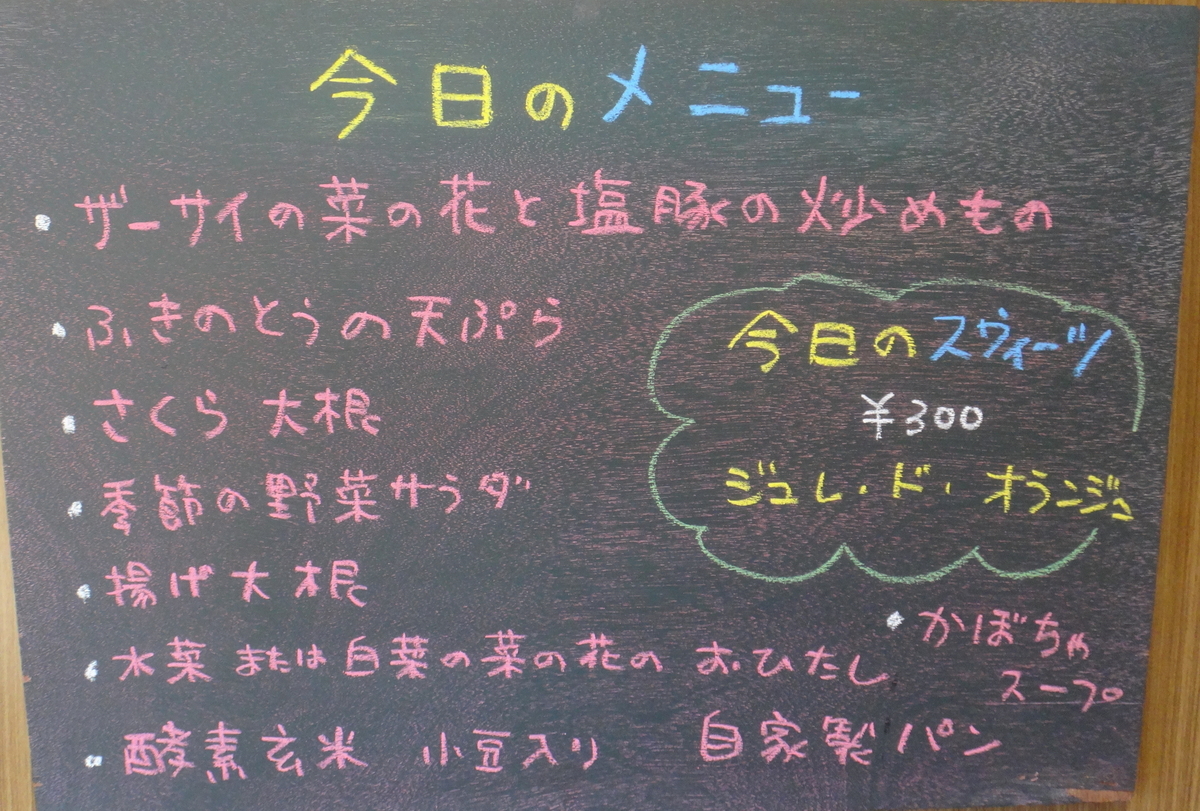 今日のメニュー
・ザーサイの菜の花と塩豚の炒めもの
・ふきのとうの天ぷら
・さくら 大根
・季節の野菜サラダ
・揚げ大根
・水菜 または 白菜の菜の花の おひたし
・酵素玄米 小豆入り 自家製パン
今日のスウィーツ
¥300
ジュレ・ド・オランジュ
・かぼちゃ
スープ